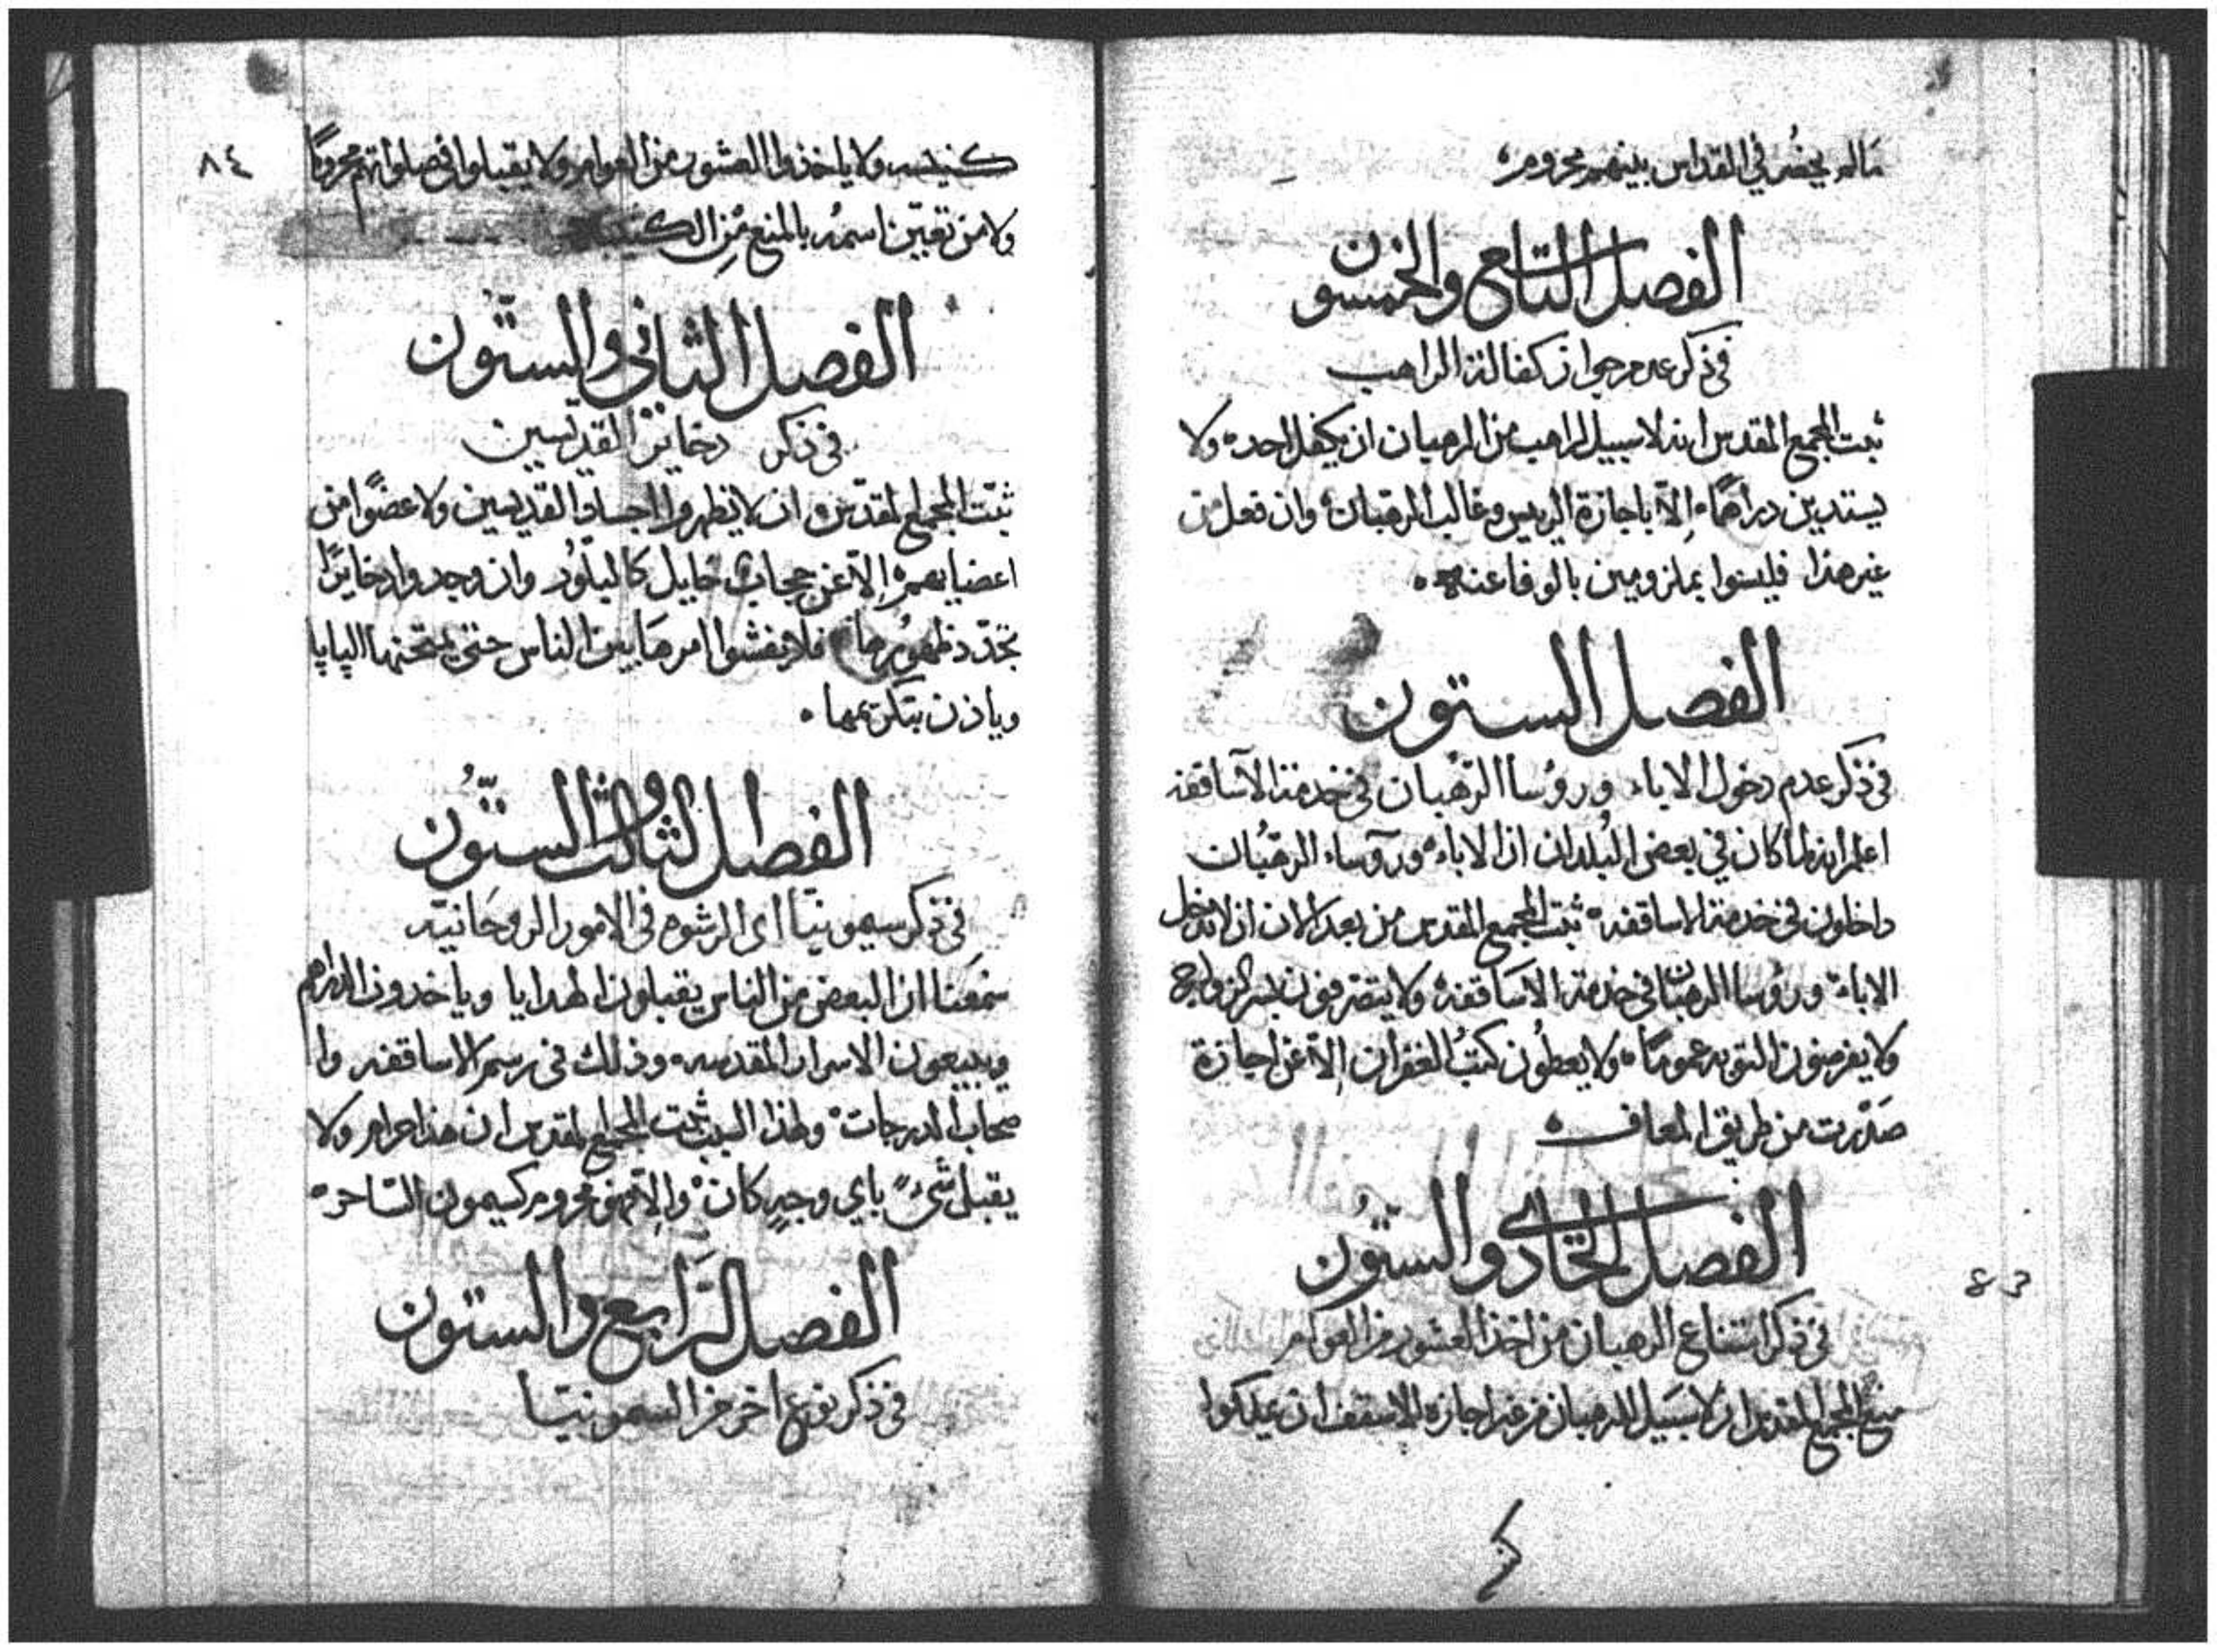 مالم يحضر في القداس بينهم محروم
الفصل التاسع والخمسون
في ذكر عدم جواز كفالة الراهب
ثبت المجمع المقدس انه لا سبيل لراهب من الرهبان ان يكفل احد ولا
يستدين دراهمًا إلّا باجازة الريس وغالب الرهبان وان فعل من
غير هذا فليسوا بملزومين بالوفا عنه
الفصل الستون
في ذكر عدم دخول الاباء وروُسا الرهبان في خدمة الآساقفه
اعلم انه لما كان في بعض البُلدان ان الاباء وروآساء الرهبان
داخلون في خدمة الاساقفه ثبت المجمع المقدس من بعد الان ان لا تدخل
الاباء وروُسا الرهبان في خدمة الاسَاقفه ولا يتصرفون بسر الزواج
ولا يفرضون التوبه عمومًا ولا يعطوُن كتبُ الغفران إلّا عن اجازة
صَدّرت من طريق المعاف
الفصل الحَادي والستّوُن
في ذكر امتناع الرهبان من اخذ العشور من العوام
منع المجمع المقدس ان لا سَبيل للرهبان من غير اجازه الاسقف ان يملكوا
83
كنيسه ولا ياخذوا العشور من العوام ولا يقبلوا في صلواتهم محرومًا
٨٤
ولا من تعيّن اسمُه بالمنع مِن
الفصل الثاني والستّوُن
في ذكر دخاير القديسين
ثبّت المجمع المقدّس ان لا يظهروا اجساد القديسين ولا عضوًا من
اعضايهم إلّا عن حجاب حايل كالبلّوُر وان وجدوا دخايرًا
تجدّد ظهوُرها فلا يفشوا امرهَا بين الناس حتى يمتحنها الپاپا
وياذن بتكريمها
الفصل الثالث والستّوُن
في ذكر سيمونيا اي الرشوه في الامور الروحَانيه
سَمِعنا ان البعض من الناس يقبلون الهدايا وياخدون الدراهم
ويبيعون الاسرار المقدسه وذلك في رسم الاساقفه وا
صحاب الدرجات ولهذا السبب ثبت المجمع المقدس ان هذا حرام ولا
يقبل شيءً باي وجهٍ كان وإلّا فهو محروم كسيمون السّاحر
الفصل الرَابع والستون
في ذكر نوع اخر من السمونيا